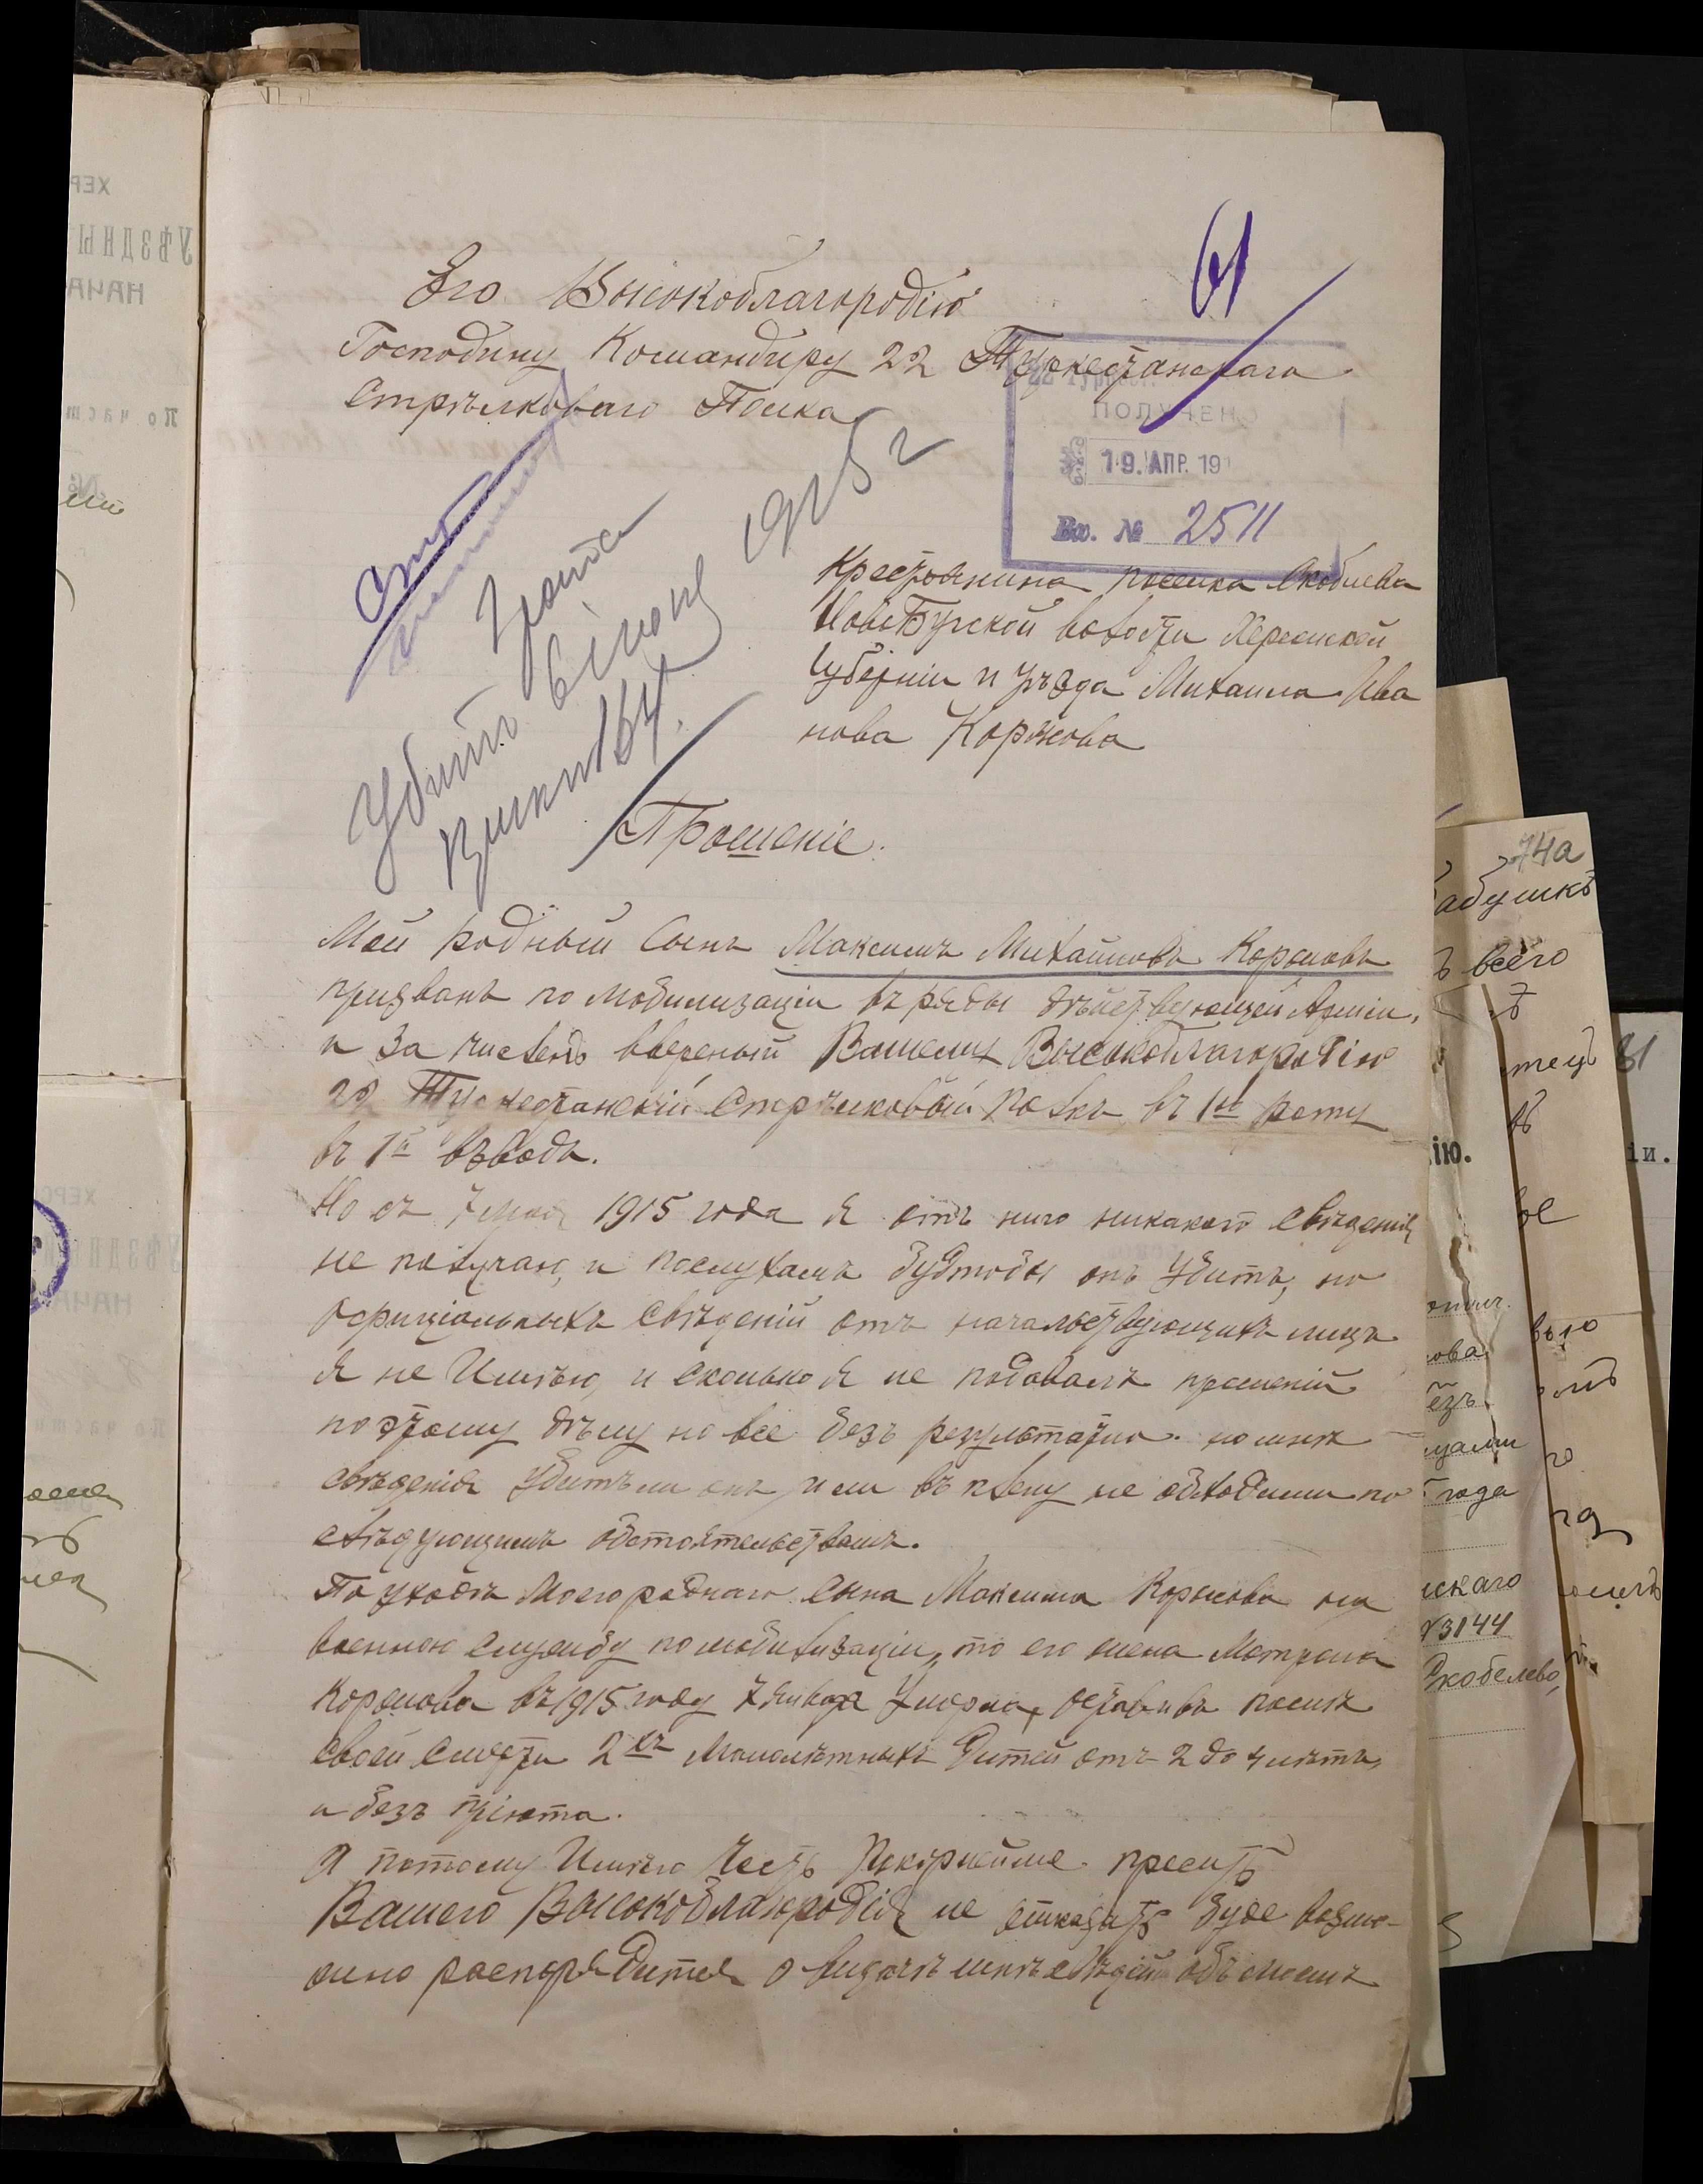 61
Его Высокоблагородію
Господину Командиру 22 Туркестанскаго
Стрѣлковаго Полка
ПОЛУЧЕНО
19. АПР. 191
Вх. № 2511
Крестьянина поселка Скобелева
Ново Бугской волости Херсонской
Губерніи и уѣзда Михаила Ива
нова Коржова
1 рота
Убитъ 6 іюня 1915 г
164.
Прошеніе.
Мой родный Сынъ Максимъ Михайловъ Коржовъ
призванъ по мобилизаціи въ ряды дѣйствующей Арміи,
и За численъ ввереный Вашему Высокоблагородію
22 Туркестанскій Стрѣлковый Полкъ въ 1й роту
въ 1й взводъ.
Но съ 7 1915 года Я отъ него никакого свѣденія
не получаю, и послухамъ будтобы онъ Убитъ, но
официіальныхъ свѣденій отъ началствующихъ лицъ
Я не Имѣю, и сколько Я не подовалъ прошеній
поэтому дѣлу но все безъ результатно. но мнѣ
свѣденія Убитъ ли онъ или въ плену не обходими по
слѣдующимъ обстоятельствамъ.
По уходѣ Моего роднаго сына Максима Коржова на
военною службу по мобилизаціи, то его жена Матрона
Коржова въ 1915 году 7 Января Умерла, оставивъ послѣ
своей смерти 2хъ Малолѣтныхъ Дитей отъ 2 до 4 лѣтъ,
и безъ пріюта.
А потому Имѣю Честь Покорнейше просить
Вашего Высокоблагородія не отказать буде возмо-
жно распорядится о видачѣ мнѣ свѣдений объ моемъ
74а
бабушкѣ
всего
81
ію.
іи.
года
скаго
3144
Скобелево,